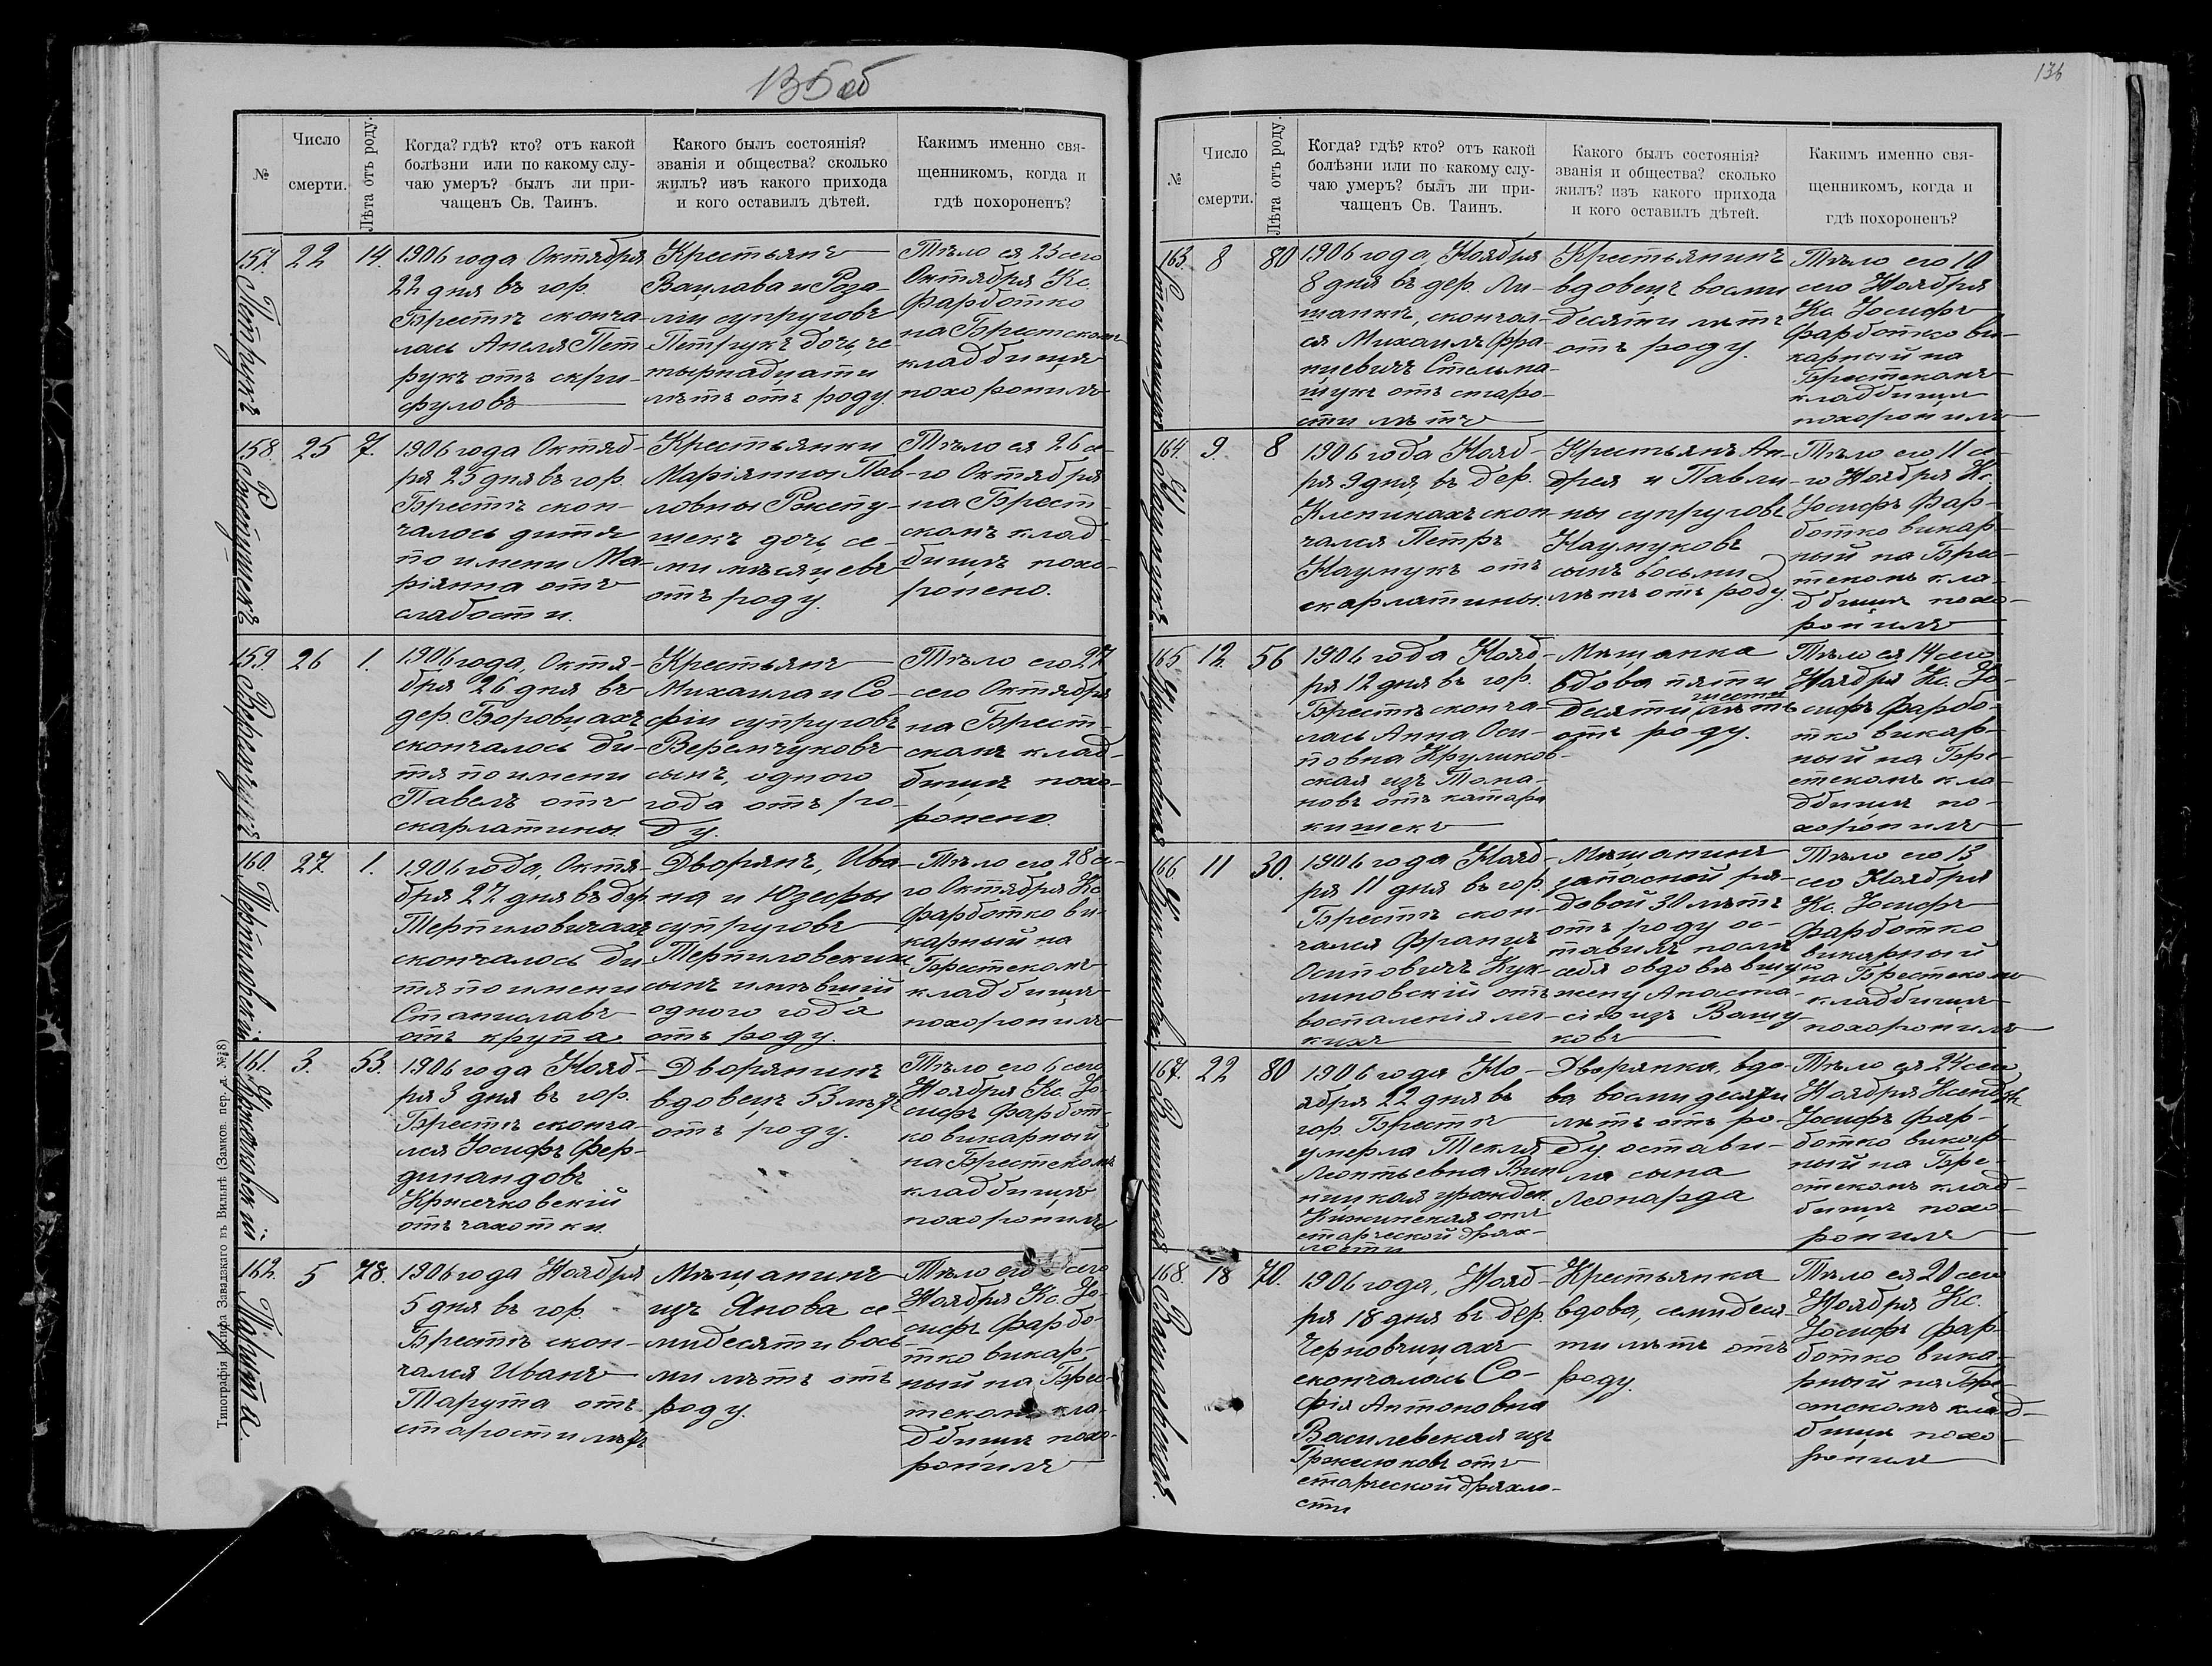 135 об
136
№
Число
смерти.
Лѣта отъ роду.
Когда? гдѣ? кто? отъ какой
болѣзни или по какому слу-
чаю умеръ? былъ ли при-
чащенъ Св. Таинъ.
Какого былъ состоянія?
званія и общества? сколько
жилъ? изъ какого прихода
и кого оставилъ дѣтей.
Какимъ именно свя-
щенникомъ, когда и
гдѣ похороненъ?
157.
Петрукъ
22
14.
1906 года Октября
22 дня въ гор.
Брестѣ сконча-
лась Анеля Пет
рукъ отъ скри-
фуловъ
Крестьянъ
Вацлава и Роза-
ліи супруговъ
Петрукъ дочь, че-
тырнадцати
лѣтъ отъ роду.
Тѣло ея 23 сего
Октября Кс.
Фарботко
на Брестскомъ
кладбищѣ
похоронилъ
158.
Ржепушекъ
25
7.
1906 года Октяб-
ря 25 дня въ гор.
Брестѣ скон-
чалось дитя
по имени Ма-
ріянна отъ
слабости.
Крестьянки
Маріянны Пав-
ловны Ржепу-
шекъ дочь, се-
ми мѣсяцевъ
отъ роду.
Тѣло ея 26 се-
го Октября
на Брест-
скомъ клад-
бищѣ похо-
ронено.
159.
Веремчукъ
26
1.
1906 года, Октя-
бря 26 дня въ
дер. Боровцахъ
скончалось ди-
тя по имени
Павелъ отъ
скарлатины
Крестьянъ
Михаила и Со-
фіи супруговъ
Веремчуковъ
сынъ, одного
года отъ ро-
ду.
Тѣло его 27
сего Октября
на Брест-
скомъ клад-
бищѣ похо-
ронено.
160.
Терпиловскій
27.
1.
1906 года, Октя-
бря 27 дня въ дер
Терпиловичахъ
скончалось ди
тя по имени
Станиславъ
отъ крупа
Дворянъ, Ива-
на и Юзефы
супруговъ
Терпиловскихъ
сынъ имѣвшій
одного года
отъ роду.
Тѣло его 28 се-
го Октября Кс
Фарботко ви-
карный на
Брестскомъ
кладбищѣ
похоронилъ
161.
Кржечковскій
3.
53.
1906 года Нояб-
ря 3 дня въ гор.
Брестѣ сконча-
лся Іосифъ Фер-
динандовъ
Кржечковскій
отъ чахотки.
Дворянинъ
вдовецъ 53 лѣтъ
отъ роду.
Тѣло его 6 сего
Ноября Кс. Іо-
сифъ Фарбот-
ко викарный
на Брестскомъ
кладбищѣ
похоронилъ
162.
Тарута.
5
78.
1906 года Ноября
5 дня въ гор.
Брестѣ скон-
чался Иванъ
Тарута отъ
старости лѣтъ
Мѣщанинъ
изъ Янова се-
мидесяти вось-
ми лѣтъ отъ
роду.
Тѣло его сего
Ноября Кс. Іо-
сифъ Фарбо-
тко викар-
ный на Брес-
тскомъ кла-
дбищѣ похо-
ронилъ
Типографія Іосифа Завадзкаго въ Вильнѣ (Замков. пер. д. №8)
№
Число
смерти.
Лѣта отъ роду.
Когда? гдѣ? кто? отъ какой
болѣзни или по какому слу-
чаю умеръ? былъ ли при-
чащенъ Св. Таинъ.
Какого былъ состоянія?
званія и общества? сколько
жилъ? изъ какого прихода
и кого оставилъ дѣтей.
Какимъ именно свя-
щенникомъ, когда и
гдѣ похороненъ?
163.
Стельмащукъ
8
80
1906 года, Ноября
8 дня въ дер. Ли-
щанкѣ, скончал-
ся Михаилъ Фра-
нцевичъ Стельма-
щукъ отъ старо-
сти лѣтъ
Крестьянинъ
вдовецъ восми
десяти лѣтъ
отъ роду.
Тѣло его 10
сего Ноября
Кс. Іосифъ
Фарботко ви-
карный на
Брестскомъ
кладбищѣ
похоронилъ
164.
Наумукъ
9.
8
1906 года Нояб-
ря 9 дня, въ дер.
Клепикахъ скон-
чался Петръ
Наумукъ отъ
скарлатины.
Крестьянъ Ан-
дрея и Павли-
ны супруговъ
Наумуковъ
сынъ восьми
лѣтъ отъ роду.
Тѣло его 11 се-
го Ноября Кс.
Іосифъ Фар-
ботко викар-
ный на Брес-
тскомъ кла-
дбищѣ похо-
ронилъ
165
Круликовская
12.
56
1906 года Нояб-
ря 12 дня въ гор.
Брестѣ сконча-
лась Анна Оси-
повна Круликов-
ская изъ Тома-
новъ отъ катара
кишекъ
Мѣщанка
вдова пяти
десяти шести лѣтъ
отъ роду.
Тѣло ея 14 сего
Ноября Кс. Іо-
сифъ Фарбо-
тко викар-
ный на Бре-
стскомъ кла-
дбищѣ по-
хоронилъ
166
Куклиновскій
11
30.
1906 года Нояб-
ря 11 дня въ гор.
Брестѣ скон-
чался Францъ
Осиповичъ Кук-
линовскій отъ
воспаленія лег-
кихъ
Мѣщанинъ
запасной ря-
довой 30 лѣтъ
отъ роду ос-
тавилъ послѣ
себя овдовѣвшую
жену Анаста-
сію изъ Вашу
ковъ
Тѣло его 13
сего Ноября
Кс. Іосифъ
Фарботко
викарный
на Брестскомъ
кладбищѣ
похоронилъ
167.
Винницкая
22
80
1906 года Но-
ября 22 дня въ
гор. Брестѣ
умерла Текля
Леонтьевна Вин
ницкая урожден.
Кижинская отъ
старческой дрях-
лости
Дворянка, вдо-
ва восмидесяти
лѣтъ отъ ро-
ду остави-
ла сына
Леонарда
Тѣло ея 24 сего
Ноября Ксендзъ
Іосифъ Фар-
ботко викар-
ный на Бре-
стскомъ клад-
бищѣ похо-
ронилъ
168.
Василевская.
18
70.
1906 года, Нояб-
ря 18 дня въ дер.
Черновчицахъ
скончалась Со-
фія Антоновна
Василевская изъ
Гржесюковъ отъ
старческой дряхло-
сти
Крестьянка
вдова, семидеся-
ти лѣтъ отъ
роду.
Тѣло ея 20 сего
Ноября Кс.
Іосифъ Фар-
ботко вика-
рный на Бре-
стскомъ клад-
бищѣ похо-
ронилъ